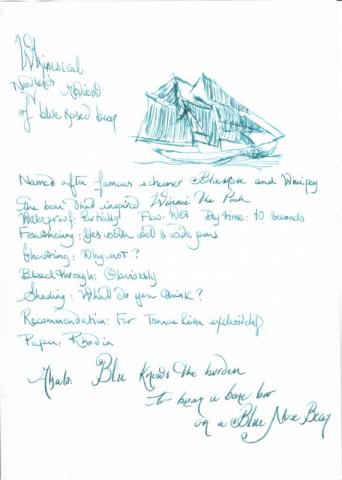 Whimsical
Nadler's review
of blue nosed bear
Named after famous schooner BlueNose and Winnipeg
the bear that inspired Winnie The Pooh
Waterproof: Partially Flow: Wet Dry time: 10 seconds
Feathering: Yes with wet & wide pens
Ghosting: Why not?
Bleedthrough: Obviously
Shading: What do you think?
Recommendation: For Tomoe River exclusively
Paper: Rhodia
Blu Knows the burden
to bear a bare bar
on a Blue Nose Bear